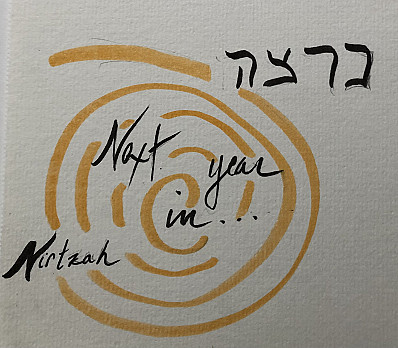 נרצה
Next year
in...
Nirtzah